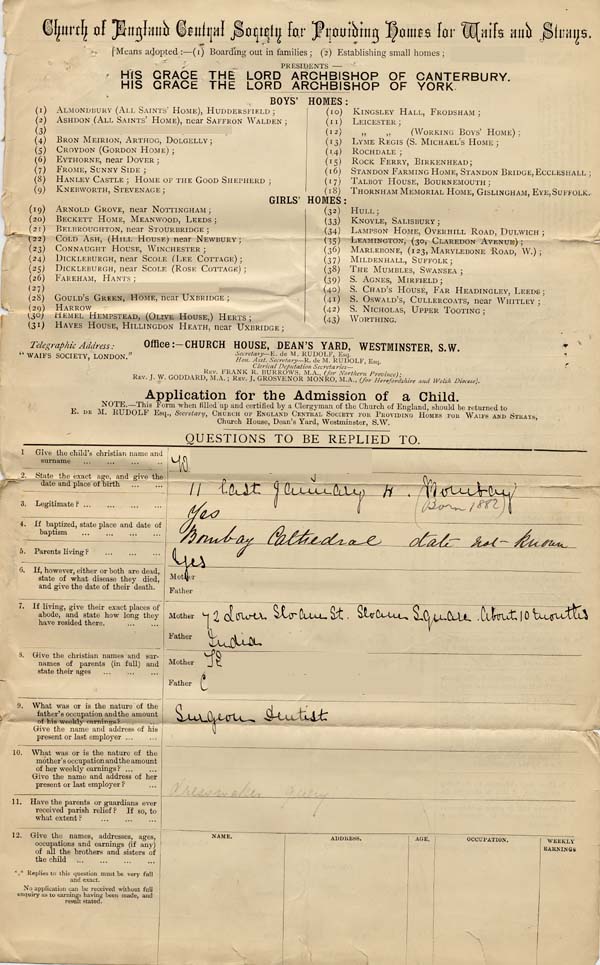 Church of England Central Society for Providing Homes for Waifs and Strays.
[Means adopted :—(1) Boarding out in families; (2) Establishing small homes;
PRESIDENTS —
HIS GRACE THE LORD ARCHBISHOP OF CANTERBURY.
HIS GRACE THE LORD ARCHBISHOP OF YORK.
BOYS' HOMES:
(1) ALMONDBURY (ALL SAINTS' HOME), HUDDERSFIELD;
(2) ASHDON (ALL SAINTS' HOME), near SAFFRON WALDEN;
(3)
(4) BRON MEIRION, ARTHOG, DOLGELLY;
(5) CROYDON (GORDON HOME);
(6) EYTHORNE, near DOVER;
(7) FROME, SUNNY SIDE;
(8) HANLEY CASTLE; HOME OF THE GOOD SHEPHERD;
(9) KNEBWORTH, STEVENAGE;
(10) KINGSLEY HALL, FRODSHAM;
(11) LEICESTER;
(12) „ „ (WORKING BOYS' HOME);
(13) LYME REGIS (S. MICHAEL'S HOME;
(14) ROCHDALE;
(15) ROCK FERRY, BIRKENHEAD;
(16) STANDON FARMING HOME, STANDON BRIDGE, ECCLESHALL;
(17) TALBOT HOUSE, BOURNEMOUTH;
(18) THORNHAM MEMORIAL HOME, GISLINGHAM, EYE, SUFFOLK.
GIRLS' HOMES:
(19) ARNOLD GROVE, near NOTTINGHAM;
(20) BECKETT HOME, MEANWOOD, LEEDS;
(21) BELBROUGHTON, near STOURBRIDGE;
(22) COLD ASH, (HILL HOUSE) near NEWBURY;
(23) CONNAUGHT HOUSE, WINCHESTER;
(24) DICKLEBURGH, near SCOLE (LEE COTTAGE);
(25) DICKLEBURGH, near SCOLE (ROSE COTTAGE);
(26) FAREHAM, HANTS;
(27)
(28) GOULD'S GREEN, HOME, near UXBRIDGE;
(29) HARROW
(30) HEMEL HEMPSTEAD, (OLIVE HOUSE,) HERTS;
(31) HAYES HOUSE, HILLINGDON HEATH, near UXBRIDGE;
(32) HULL;
(33) KNOYLE, SALISBURY;
(34) LAMPSON HOME, OVERHILL ROAD, DULWICH;
(35) LEAMINGTON, (30, CLAREDON AVENUE);
(36) MARLEBONE, (123, MARYLEBONE ROAD, W.);
(37) MILDENHALL, SUFFOLK;
(38) THE MUMBLES, SWANSEA;
(39) S. AGNES, MIRFIELD;
(40) S. CHAD'S HOUSE, FAR HEADINGLEY, LEEDS;
(41) S. OSWALD'S, CULLERCOATS, near WHITLEY;
(42) S. NICHOLAS, UPPER TOOTING;
(43) WORTHING.
Telegraphic Address:
"WAIFS SOCIETY, LONDON."
Office:—CHURCH HOUSE, DEAN'S YARD, WESTMINSTER, S.W.
Secretary—E. de M. RUDOLF, Esq.
Hon. Asst. Secretary—R. de M. RUDOLF, Esq.
Clerical Deputation Secretaries—
REV. FRANK R. BURROWS, M.A., (for Northern Province);
REV. J. W. GODDARD, M.A.; REV. J. GROSVENOR MONRO, M.A., (for Herefordshire and Welsh Diocese).
Application for the Admission of a Child.
NOTE.—This Form when filled up and certified by a Clergyman of the Church of England, should be returned to
E. DE M. RUDOLF Esq., Secretary, CHURCH OF ENGLAND CENTRAL SOCIETY FOR PROVIDING HOMES FOR WAIFS AND STRAYS,
Church House, Dean's Yard, Westminster, S.W.
QUESTIONS TO BE REPLIED TO.
1 Give the child's christian name and
surname ... ... ...
2. State the exact age, and give the
date and place of birth ... ...
11 last January 4. Bombay
(Born 1882)
3. Legitimate? ... ... ...
Yes
4. If baptized, state place and date of
baptism ... ... ...
Bombay Cathedral date not known
5. Parents living? ... ... ...
Yes
6. If, however, either or both are dead,
state of what disease they died,
and give the date of their death.
Mother
Father
7. If living, give their exact places of
abode, and state how long they
have resided there. ... ...
Mother 72 Lower Sloane St. Sloane Square. About 10 months
Father India
8. Give the christian names and sur-
names of parents (in full) and
state their ages ... ... ...
Mother
Father C
9. What was or is the nature of the
father's occupation and the amount
of his weekly earnings? ... ...
Give the name and address of his
present or last employer ... ...
Surgeon Dentist
10. What was or is the nature of the
mother's occupation and the amount
of her weekly earnings? ... ...
Give the name and address of her
present or last employer? ...
Dressmaker query
11. Have the parents or guardians ever
received parish relief? If so, to
what extent? ... ... ...
12. Give the names, addresses, ages,
occupations and earnings (if any)
of all the brothers and sisters of
the child ... ... ... ...
*** Replies to this question must be very full
and exact.
No application can be received without full
enquiry as to earnings having been made, and
result stated.
NAME. ADDRESS. AGE. OCCUPATION. WEEKLY
EARNINGS